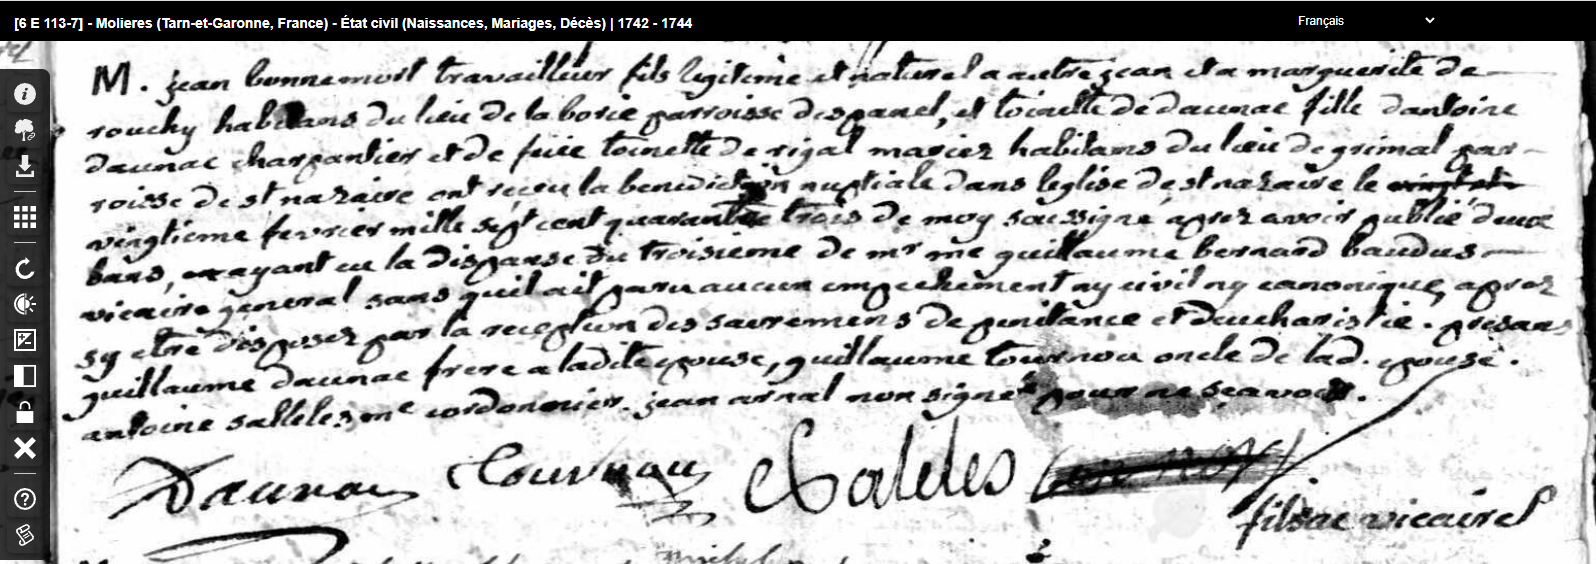 [6 E 113-7] - Molieres (Tarn-et-Garonne, France) - État civil (Naissances, Mariages, Décès) | 1742 - 1744
Français
M. jean bonnemort travailleur fils legitime et naturel a autre jean et a marguerite de
rouchy habitans du lieu de la borie parroisse despanel, et toinette de daunac fille dantoine
daunac charpantier et de feüe toinette de rigal mariez habitans du lieu de grimal par-
roisse de st nazaire ont reçeu la benediction nuptiale dans leglise de st nazaire le
vingtieme fevrier mille sept cent quarante trois de moy soussigné aprez avoir publié deux
bans, ayant eu la dispanse du troisieme de mr me guillaume bernard baudus
vicaire general sans quil ait paru aucun empechement ny civil ny canonique, aprez
sy etre disposez par la reception des sacremens de penitance et deucharistie. presans
guillaume daunac frere a ladite epouse, guillaume tournou oncle de lad. epouse.
antoine salleles me cordonnier. jean arnal non signé pour ne sçavoir.
Daunac
Tournou
Saleles
filhac vicaire